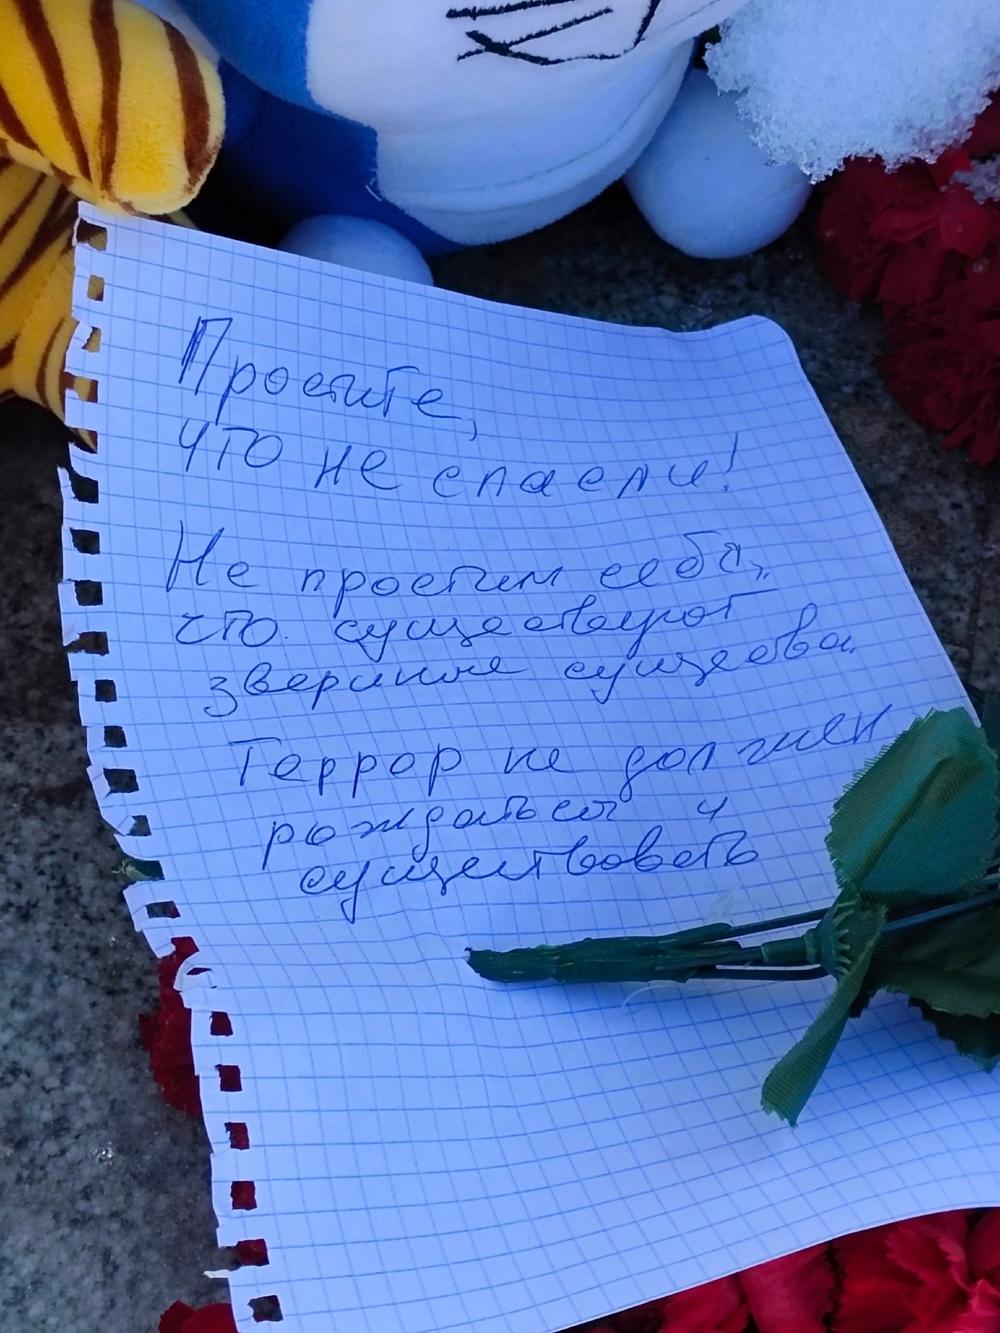 Простите,
что не спасли!
Не простим себя,
что существуют
звериные существа.
Террор не должен
рождаться и
существовать